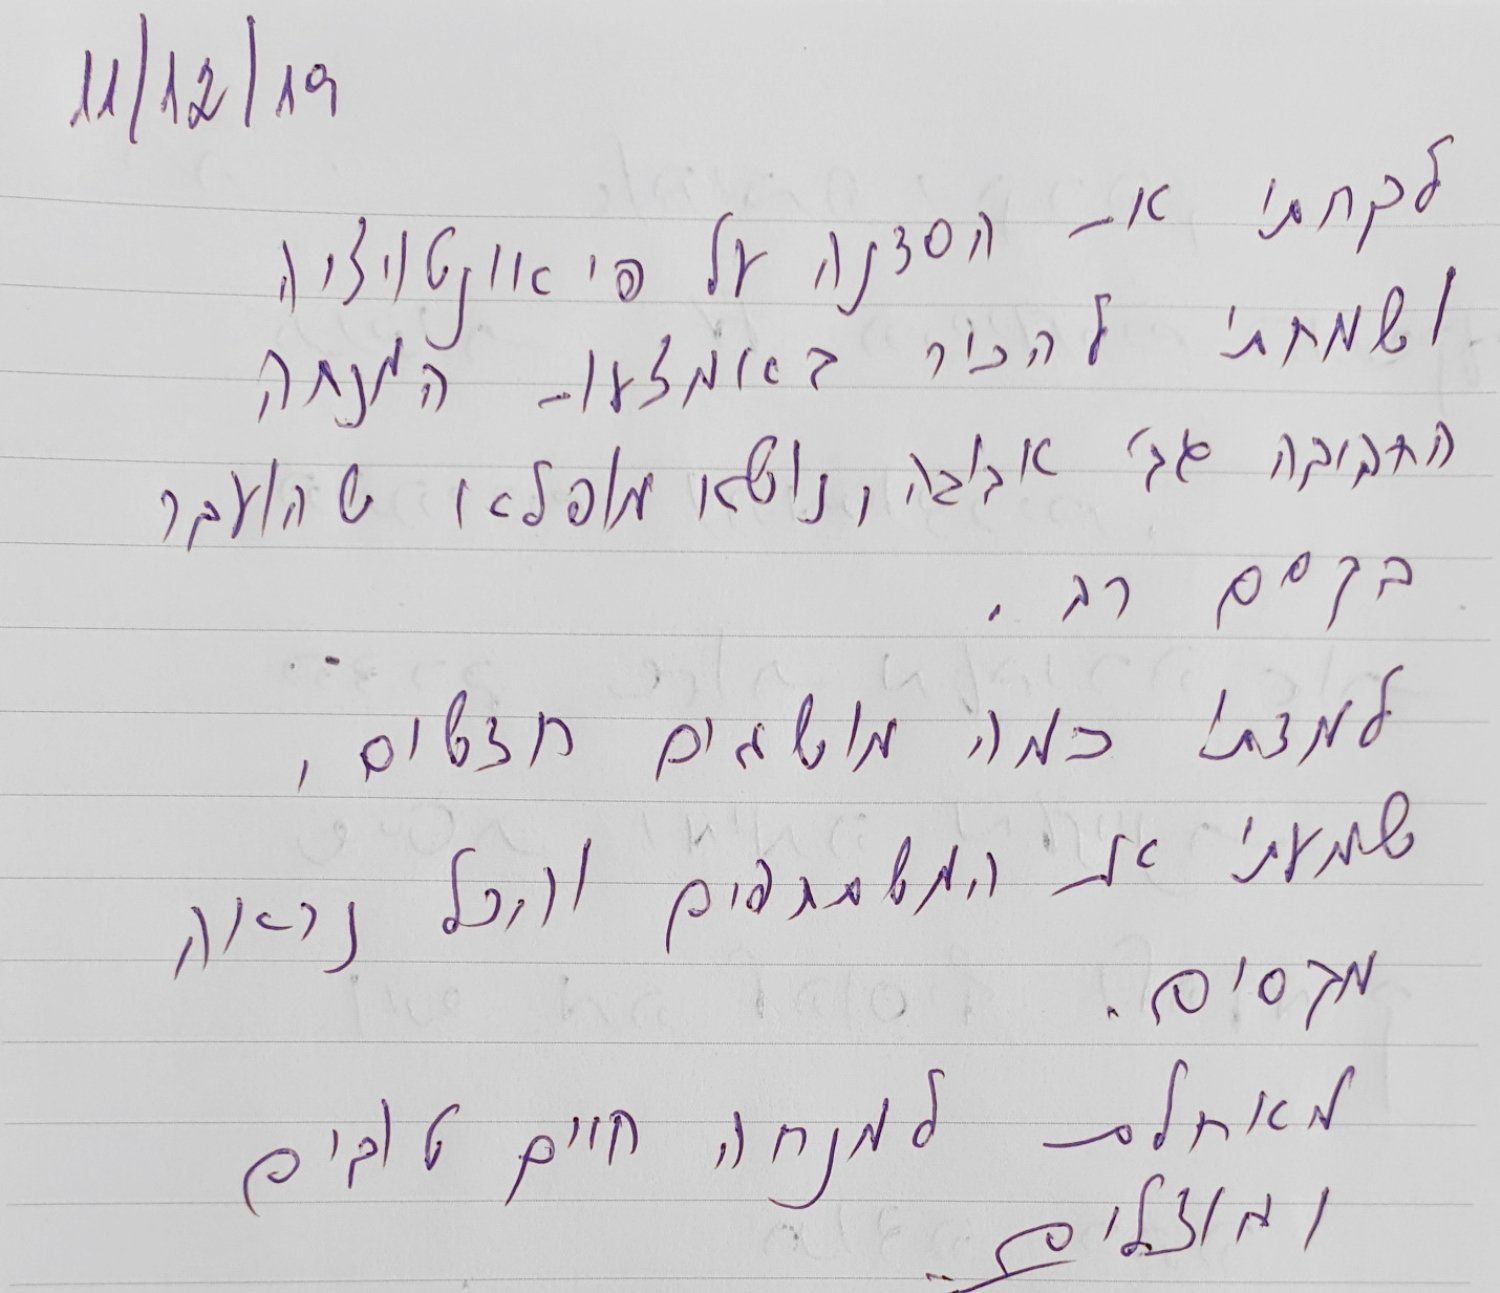 11/12/19
לקחתי את הסדנה על פי אוונטויציה
ושמחתי להכיר באמצעות המנחה
החביבה גבי אביבה, נושא מופלא שהועבר
בקסם רב.
למדתי כמה מושגים חדשים,
שמעתי את המשתתפים והכל נראה
מקסים.
מאחלת למנחה חיים טובים
ומוצלים